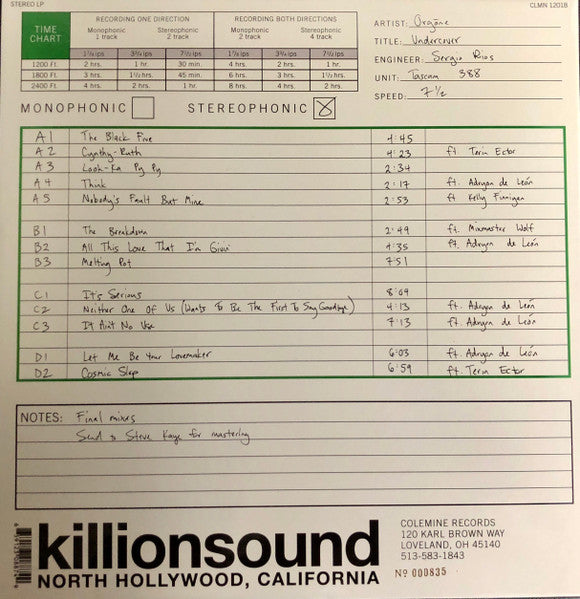 STEREO LP
CLMN 12018
TIME CHART
RECORDING ONE DIRECTION
RECORDING BOTH DIRECTIONS
Monophonic 1 track
Stereophonic 2 track
Monophonic 2 track
Stereophonic 4 track
1⅞ ips 3¾ ips 7½ ips 1⅞ ips 3¾ ips 7½ ips
1200 Ft. 2 hrs. 1 hr. 30 min. 4 hrs. 2 hrs. 1 hr.
1800 Ft. 3 hrs. 1½ hrs. 45 min. 6 hrs. 3 hrs. 1½ hrs.
2400 Ft. 4 hrs. 2 hrs. 1 hr. 8 hrs. 4 hrs. 2 hrs.
ARTIST: Orgōne
TITLE: Undercover
ENGINEER: Sergio Rios
UNIT: Tascam 388
SPEED: 7 1/2
MONOPHONIC STEREOPHONIC
A1 The Black Five 4:45
A2 Cynthy-Ruth 4:23 ft. Terin Ector
A3 Look-Ka Py Py 2:34
A4 Think 2:17 ft. Adryon de León
A5 Nobody's Fault But Mine 2:53 ft Kelly Finnigan
B1 The Breakdown 2:49 ft. Mixmaster Wolf
B2 All This Love That I'm Givin' 4:35 ft. Adryon de León
B3 Melting Pot 7:51
C1 It's Serious 8:09
C2 Neither One Of Us (Wants To Be The First To Say Goodbye) 4:13 ft. Adryon de León
C3 It Ain't No Use 7:13 ft. Adryon de León
D1 Let Me Be Your Lovemaker 6:03 ft. Adryon de León
D2 Cosmic Slop 6:59 ft. Terin Ector
NOTES: Final mixes
Send to Steve Kaye for mastering
killionsound
NORTH HOLLYWOOD, CALIFORNIA
COLEMINE RECORDS
120 KARL BROWN WAY
LOVELAND, OH 45140
513-583-1843
Nº 000835